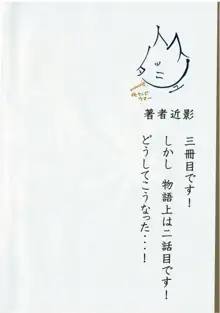 著者近影
三冊目です！
しかし 物語上は二話目です！
どうしてこうなった・・・！